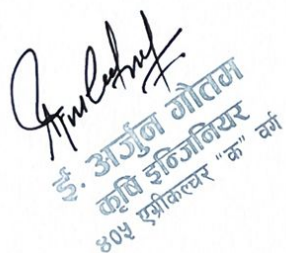 ई. अर्जुन गौतम
कृषि इन्जिनियर
४०५ एग्रीकल्चर "क" वर्ग